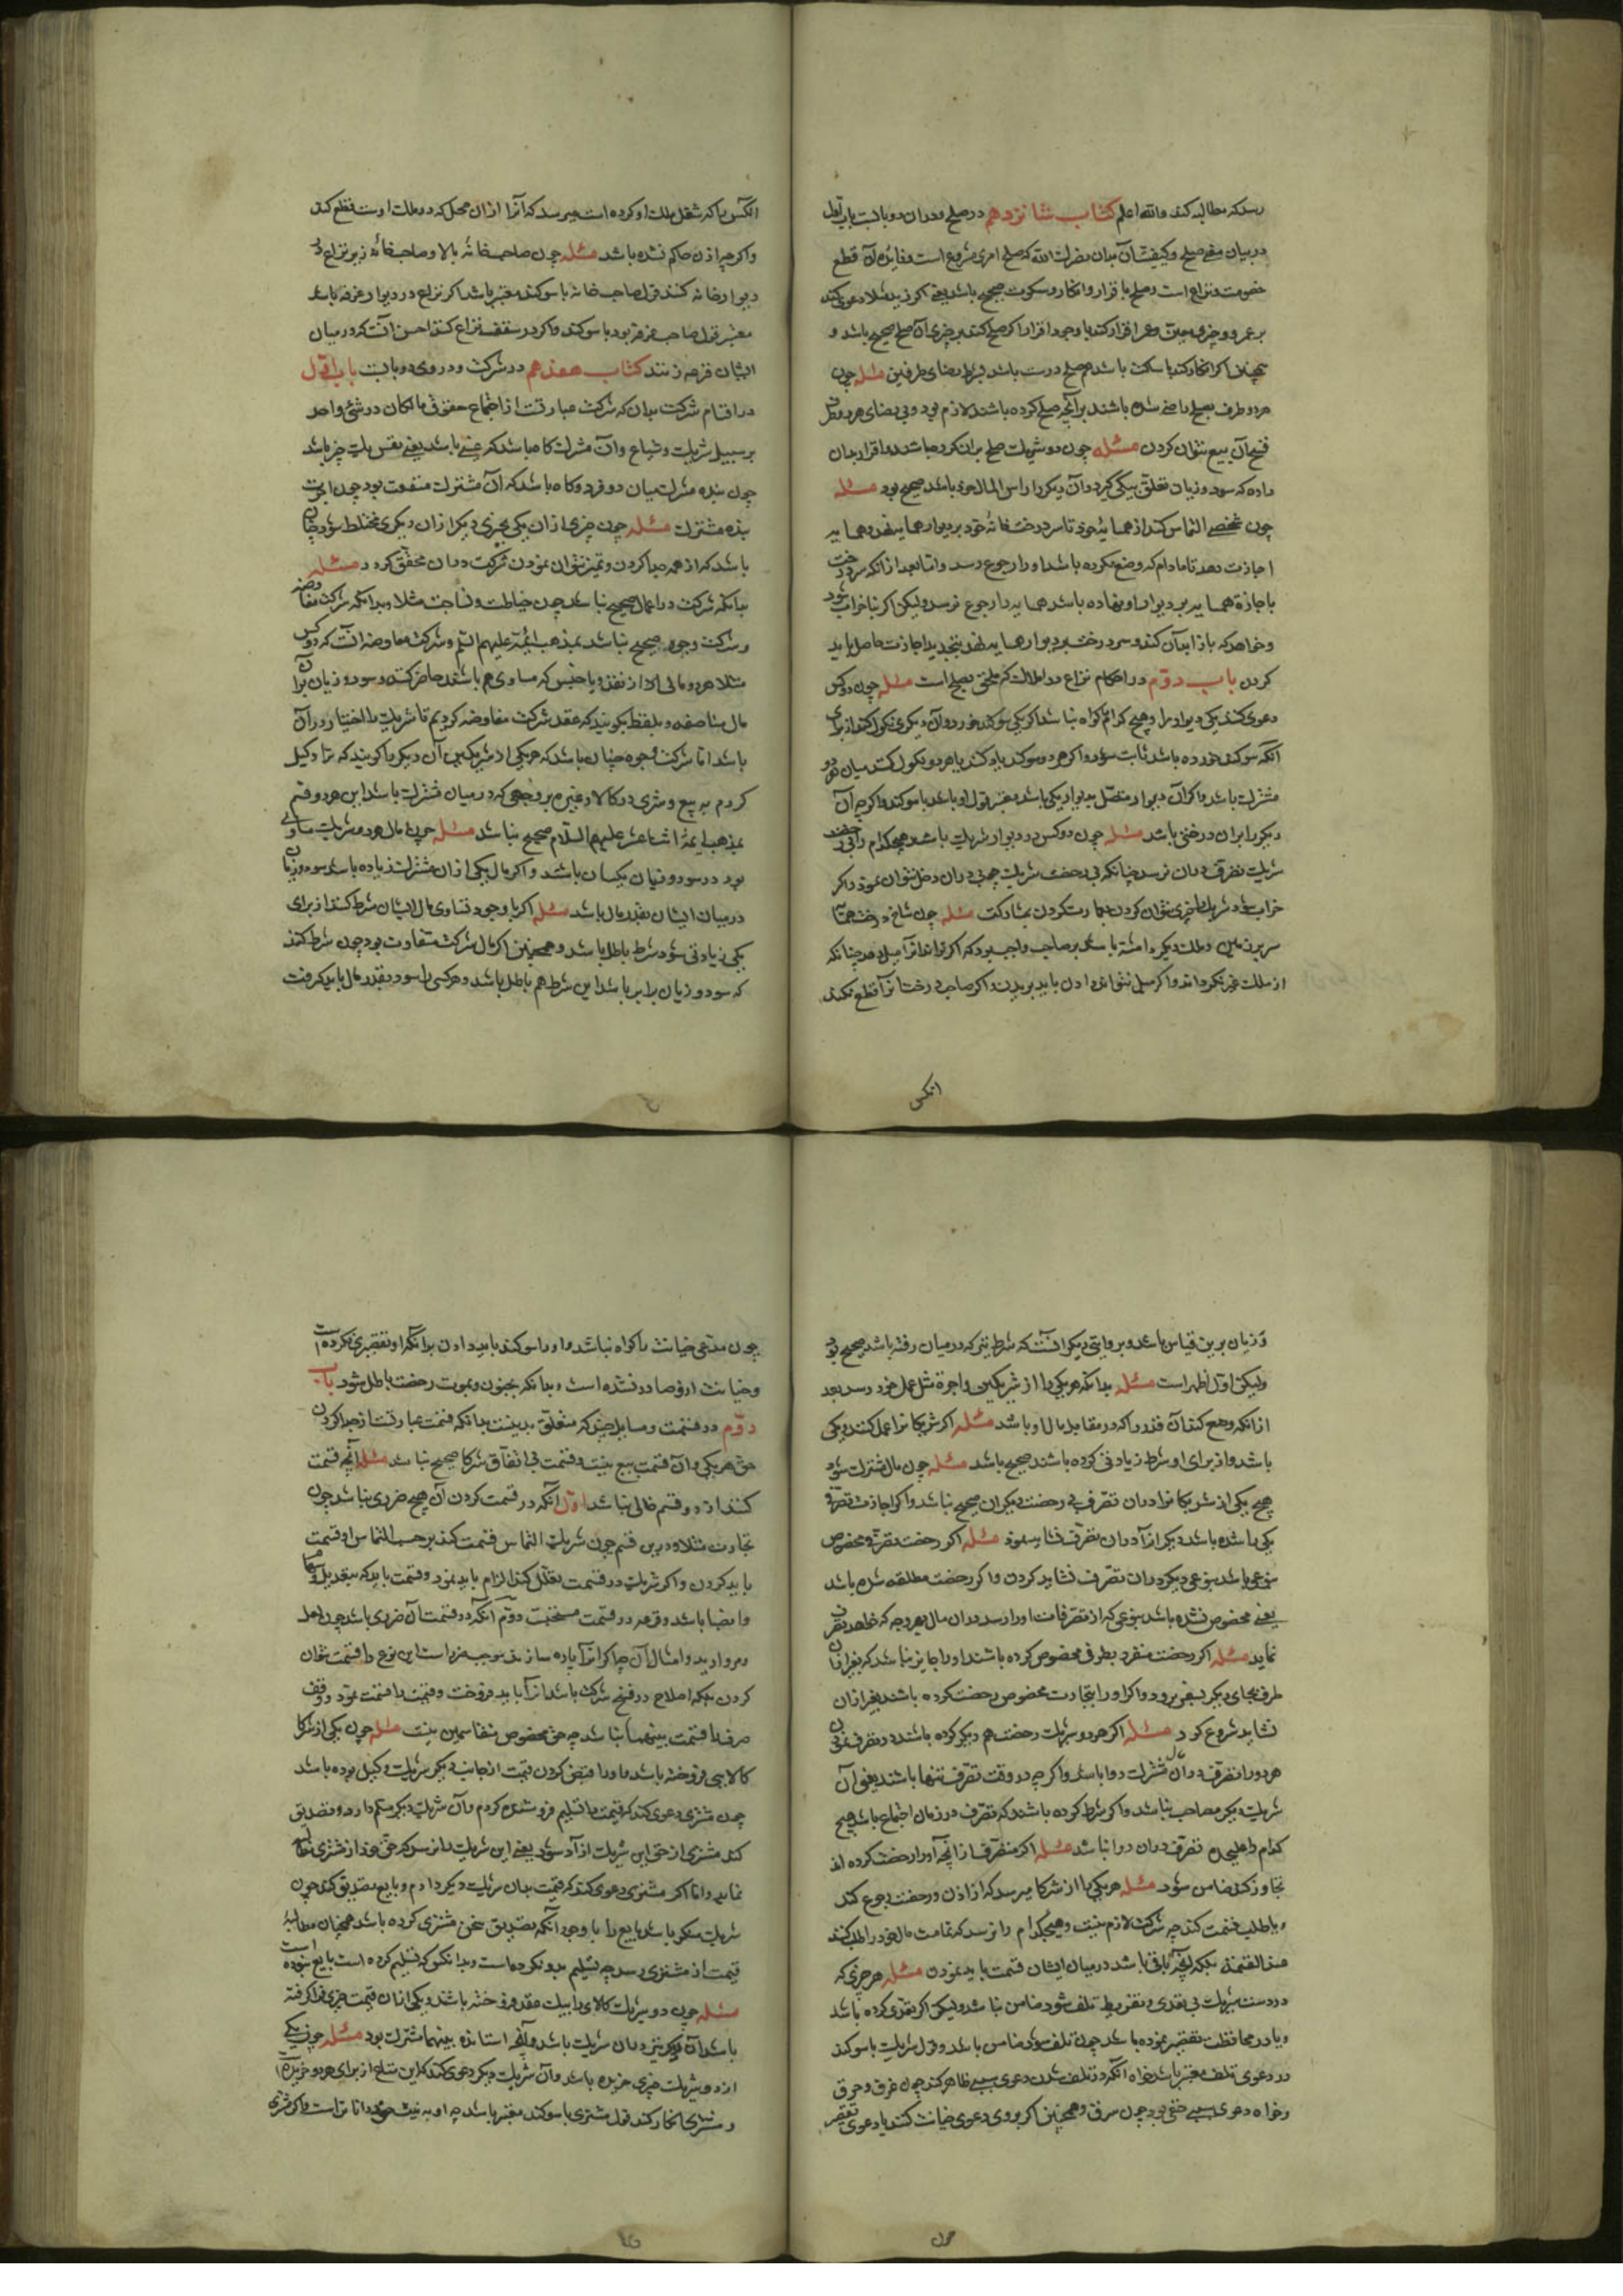 رسد که مطالبه کند والله اعلم کتاب شانزدهم در صلح و در آن دو بابست باب اول
در بیان معنی صلح و کیفیت آن بدان نصرک الله که صلح امری مشروع است و فایده آن قطع
خصومت و نزاع است و صلح با اقرار و انکار و سکوت صحیح باشد یعنی اگر زید مثلا دعوی کند
بر عمرو چیزی معین و عمرو اقرار کند با وجود اقرار اگر صلح کند بر چیزی آن صلح صحیح باشد و
همچنین اگر انکار کند یا ساکت باشد هم صلح درست باشد بشرط رضای طرفین مسئله چون
هر دو طرف بصلح راضی شده باشند بر آنچه صلح کرده باشند لازم بود و بی رضای هر دو طرف
فسخ آن بیع نتوان کردن مسئله چون دو شریک صلح بر آن کرده باشند و اقرار بدان
داده که سود و زیان تعلق بیکی گیرد و آن دیگر را راس المال خود باشد صحیح بود مسئله
چون شخصی التماس کند از همسایهٔ خود تا سر درخت خانهٔ خود بر دیوار همسایه نهد و همسایه
اجازت دهد تا مادام که وضع نکرده باشد او را رجوع رسد و اما بعد از آنکه سر درخت
باجازهٔ همسایه بر دیوار او نهاده باشد همسایه را رجوع نرسد ولیکن اگر بنا خراب شود
و خواهد که باز ابداً آن کند و سر درخت بر دیوار همسایه نهد بتجدید اجازت حاصل باید
کردن باب دوم در احکام نزاع در املاک که ملحق بصلح است مسئله چون دو کس
دعوی کنند یکی دیوار را و هیچ کدام را گواه نباشد اگر یکی سوگند خورد و آن دیگری نکول کند از برای
آنکه سوگند خورده باشد ثابت شود و اگر هر دو سوگند یاد کنند یا هر دو نکول کنند میان هر دو
مشترک باشد و اگر آن دیوار متصل بدیوار یکی باشد معتبر قول او باشد با سوگند و اگر چه آن
دیگر را بر آن درختی باشد مسئله چون دو کس در دیوار شریک باشند هیچکدام را بی رخصت
شریک تصرف در آن نرسد چنانکه بی رخصت شریک چوبی در آن دخل نتوان نمود و اگر
خراب شود شریک را جبری نتوان کردن بعمارت کردن بمشارکت مسئله چون شاخ درخت همسایه
سر برزمین و ملک دیگری داشته باشد بر صاحب واجب بود که اگر تواند آنرا میل دهد چنانکه
از ملک غیر بگرداند و اگر میل نتواند دادن باید بریدن و اگر صاحب درخت آنرا قطع نکند
انکس
انکس را که شغل ملک او کرده است میرسد که آنرا از آن محل که در ملک اوست قطع کند
و اگر چه اذن حاکم نشده باشد مسئله چون صاحب خانهٔ بالا و صاحب خانهٔ زیر نزاع در
دیوار خانه کنند قول صاحب خانه با سوگند معتبر باشد اگر نزاع در دیوار غرفه باشد
معتبر قول صاحب غرفه بود با سوگند و اگر در سقف نزاع کنند احسن آنست که در میان
ایشان قرعه زنند کتاب هفدهم در شرکت و در وی دو بابست باب اول
در اقسام شرکت بدان که شرکت عبارتست از اجتماع حقوق مالکان در شئ واحد
بر سبیل شریک و شیاع و آن مشترک گاه باشد که عینی باشد یعنی نفس یک چیز باشد
چون بنده مشترک میان دو فرد و گاه باشد که آن مشترک منفعت بود چون اجرت
بنده مشترک مسئله چون چیزی از آن یکی بچیزی دیگر از آن دیگری مختلط شود چنان
باشد که از هم جدا کردن و تمیز نتوان نمودن شرکت در آن محقق گردد مسئله
بدانکه شرکت در اعمال صحیح نباشد چون خیاطت و نساجت مثلا و بدانکه شرکت مفاوضه
و شرکت وجوه صحیح نباشد بمذهب ائمه علیهم السلم و شرکت مفاوضه آنست که دو کس
مثلا هر دو مالی را از نقد و یا جنس که مساوی هم باشند حاضر کنند و سود و زیان بر آن
مال مناصفه و بلفظ بگویند که عقد شرکت مفاوضه کردیم تا شریک را اختیار در آن
باشد اما شرکت وجوه چنان باشد که هر یکی از شریکین آن دیگر را گویند که ترا وکیل
کردم به بیع و شری در کالا و غیره بر وجهی که در میان مشترک باشد این هر دو قسم
بمذهب ایمهٔ اثنا عشر علیهم السلام صحیح نباشد مسئله چون مال هر دو شریک مساوی
بود در سود و زیان یکسان باشند و اگر مال یکی از آن مشترک زیاده باشد سود و زیان
در میان ایشان بقدر مال باشد مسئله اگر با وجود تساوی مال ایشان شرط کنند از برای
یکی زیادتی سود شرط باطل باشد و همچنین اگر مال شرکت متفاوت بود چون شرط کنند
که سود و زیان برابر باشد این شرط هم باطل باشد و هر کسی را سود بقدر مال باید گرفت
و زیان برین قیاس باشد و بروایتی دیگر آنست که شرط نیز که در میان رفته باشد صحیح بود
ولیکن اول اظهر است مسئله بدانکه هر یکی را از شریکین و اجرة مثل عمل خود رسد بعد
از آنکه وضع کنند آن قدر را که در مقابل مال او باشد مسئله اگر شریکانرا عمل کنند و یکی
باشد و از برای او شرط زیادتی کرده باشند صحیح باشد مسئله چون مال مشترک شود
هیچ یکی از شریکانرا در آن تصرف بی رخصت دیگران صحیح نباشد و اگر اجازت تصرف
یکی را شده باشد دیگر انرا در آن تصرف نشاید نمود مسئله اگر رخصت تصرف مخصوص
بنوعی باشد بنوعی دیگر در آن تصرف نشاید کردن و اگر رخصت مطلقه شده باشد
یعنی مخصوص نشده باشد بنوعی که از تصرفات او را رسد در آن مال بهر وجه که خواهد تصرف
نماید مسئله اگر رخصت سفر بطرفی مخصوص کرده باشند او را جایز نباشد که بغیر از آن
طرف بجای دیگر بسفر برود و اگر او را بتجارت مخصوص رخصت کرده باشند بغیر از آن
نشاید شروع کرد مسئله اگر هر دو شریک رخصت هم دیگر کرده باشند در تصرف نمودن
هر دو را تصرف در آن مال مشترک روا باشد و اگر چه در وقت تصرف تنها باشند یعنی آن
شریک دیگر مصاحب نباشد و اگر شرط کرده باشند که تصرف در زمان اجتماع باشد هیچ
کدام را علیحده تصرف در آن روا نباشد مسئله اگر متصرف از آنچه او را رخصت کرده اند
تجاوز کند ضامن شود مسئله هر یکی را از شرکا میرسد که از اذن و رخصت رجوع کند
و یا طلب قسمت کند چه شرکت لازم نیست و هیچکدام را نرسد که تمامت مال خود را طلب کند
عند القسمة بلکه آنچه باقی باشد در میان ایشان قسمت باید نمودن مسئله هر چیزی که
در دست شریک بی تعدی و تفریط تلف شود ضامن نباشد ولیکن اگر تعدی کرده باشد
و یا در محافظت تقصیر نموده باشد چون تلف شود ضامن باشد و قول شریک با سوگند
در دعوی تلف معتبر باشد خواه آنکه در تلف شدن دعوی سببی ظاهر کند چون غرق و حرق
و خواه دعوی سببی خفی بود چون سرقت و همچنین اگر بروی دعوی خیانت کنند یا دعوی تقصیر
چون
چون مدعی خیانت را گواه نباشد و او را سوگند باید دادن بر آنکه او تقصیری نکرده است
و خیانت از و صادر نشده است و بدانکه بجنون و بموت رخصت باطل شود باب
دوم در قسمت و مسایل چند که متعلق بدینست بدانکه قسمت عبارتست از جدا کردن
حق هر یکی و آن قسمت بیع نیست و قسمت بی اتفاق شرکا صحیح نباشد مسئله آنچه قسمت
کنند از دو قسم خالی نباشد اول آنکه در قسمت کردن آن هیچ ضرری نباشد چون
تجارت مثلا و درین قسم چون شریک التماس قسمت کند بر حسب التماس او قسمت
باید کردن و اگر شریک در قسمت تعلل کند الزام باید نمود و قسمت باید که بتعدیل سهام
و رضا باشد و قرعه در قسمت مستحبست دوم آنکه در قسمت آن ضرری باشد چون لعل
و مروارید و امثال آن چه اگر انرا پاره سازند موجب ضرر است این نوع را قسمت نتوان
کردن بلکه اصلاح در فسخ شرکت باشد انرا باید فروخت و قیمت را قسمت نمود و وقف
صرف را قسمت بینهما نباشد چه حق مخصوص متقاسمین نیست مسئله چون یکی از شرکا
کالایی فروخته باشد و او را قبض کردن قیمت از جانب دیگر شریک وکیل بوده باشد
چون مشتری دعوی کند که قیمت را تسلیم فروشنده کردم و آن شریک دیگر مسلم دارد و تصدیق
کند مشتری از حق این شریک ازاد شود یعنی این شریک را نرسد که حق خود از مشتری تقاضا
نماید و اما اگر مشتری دعوی کند که قیمت بدان شریک دیگر دادم و بایع تصدیق کند چون
شریک منکر باشد بایع را با وجود آنکه تصدیق سخن مشتری کرده باشد همچنان مطالبهٔ
قیمت از مشتری رسد چه تسلیم بدو نکرده است و بدانکس که تسلیم کرده است بایع نبوده است
مسئله چون دو شریک کالای را بیک عقد فروخته باشند و یکی از آن قیمت چیزی فرا گرفته
باشد آن دیگر نیز در آن شریک باشد و آنچه استانده بینهما مشترک بود مسئله چون یکی
از دو شریک چیزی خریده باشد و آن شریک دیگر دعوی کند که این متاع از برای هر دو خریدهٔ
و مشتری انکار کند قول مشتری با سوگند معتبر باشد چه او به نیت خود داناتر است و اگر مشتری